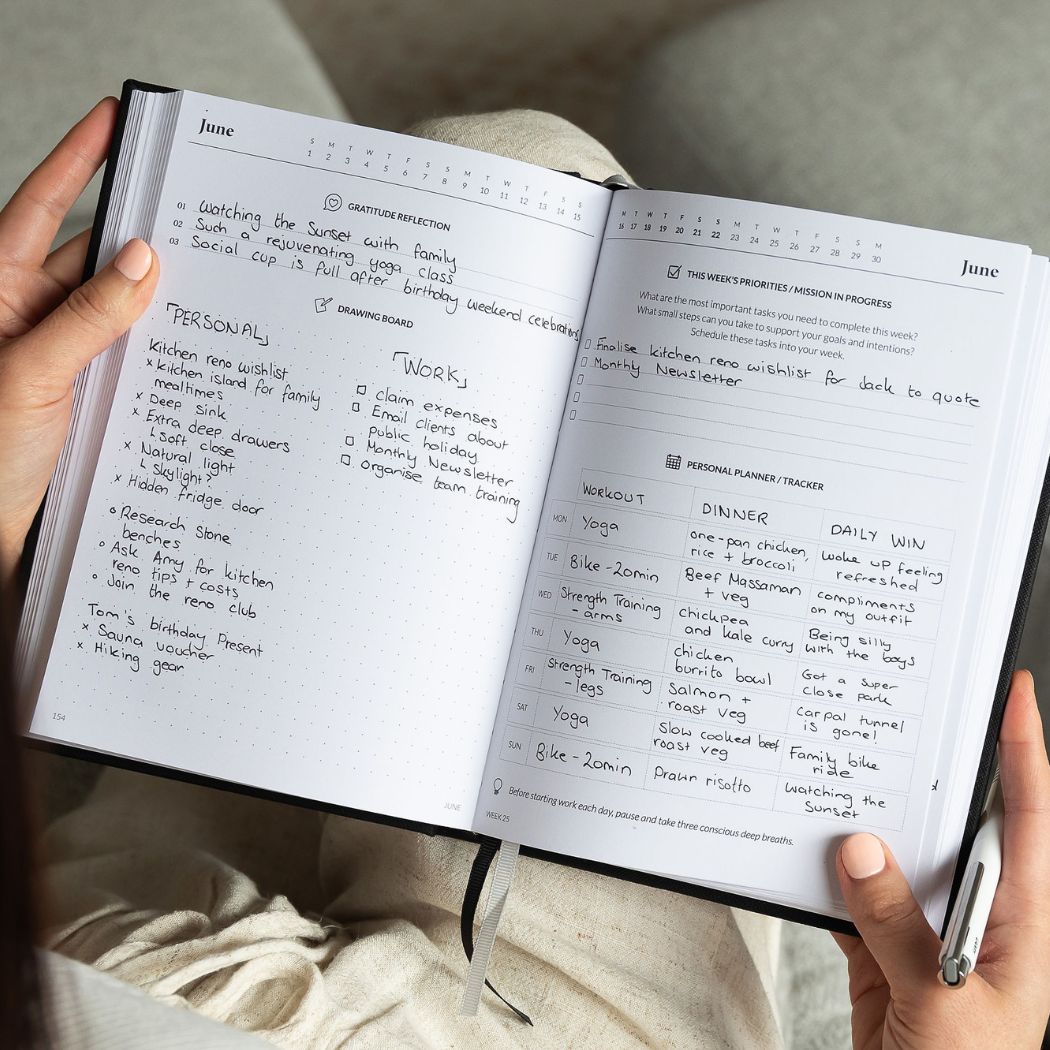 June
S M T W T F S S M T W T F S S
1 2 3 4 5 6 7 8 9 10 11 12 13 14 15
GRATITUDE REFLECTION
01 Watching the Sunset with family
02 Such a rejuvenating yoga class
03 Social cup is full after birthday weekend celebrations
DRAWING BOARD
PERSONAL
Kitchen reno wishlist
x kitchen island for family
mealtimes
x Deep sink
x Extra deep drawers
↳ Soft close
x Natural light
↳ skylight?
x Hidden fridge door
o Research Stone
benches
o Ask Amy for kitchen
reno tips + costs
o Join the reno club
Tom's birthday Present
x Sauna voucher
x Hiking gear
WORK
claim expenses
Email clients about
public holiday
Monthly Newsletter
organise team training
154
JUNE
M T W T F S S M T W T F S S M
16 17 18 19 20 21 22 23 24 25 26 27 28 29 30
June
THIS WEEK'S PRIORITIES / MISSION IN PROGRESS
What are the most important tasks you need to complete this week?
What small steps can you take to support your goals and intentions?
Schedule these tasks into your week.
Finalise kitchen reno wishlist for Jack to quote
Monthly Newsletter
PERSONAL PLANNER / TRACKER
WORKOUT DINNER DAILY WIN
MON Yoga one-pan chicken, rice + broccoli woke up feeling refreshed
TUE Bike - 20min Beef Massaman + veg compliments on my outfit
WED Strength Training - arms chickpea and kale curry Being silly with the boys
THU Yoga chicken burrito bowl Got a super close park
FRI Strength Training - legs Salmon + roast veg Carpal tunnel is gone!
SAT Yoga Slow cooked beef roast veg Family bike ride
SUN Bike - 20min Prawn risotto Watching the Sunset
Before starting work each day, pause and take three conscious deep breaths.
WEEK 25